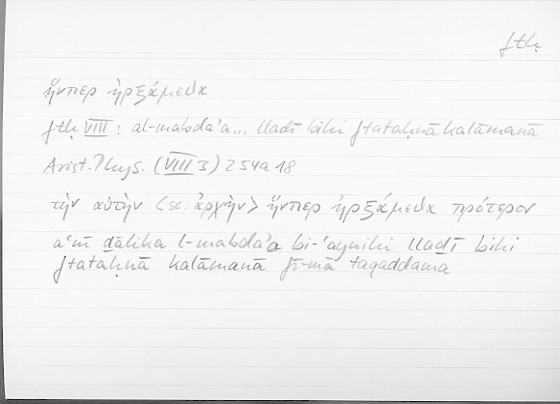 ftḥ
ἥνπερ ἠρξάμεθα
ftḥ VIII : al-mabda’a... lladī bihi ftataḥnā kalāmanā
Arist. Phys. (VIII 3) 254a18
τὴν αὐτὴν <sc. ἀρχὴν> ἥνπερ ἠρξάμεθα πρότερον
a‘nī ḏālika l-mabda’a bi-‘aynihi llaḏī bihi
ftataḥnā kalāmanā fī-mā taqaddama